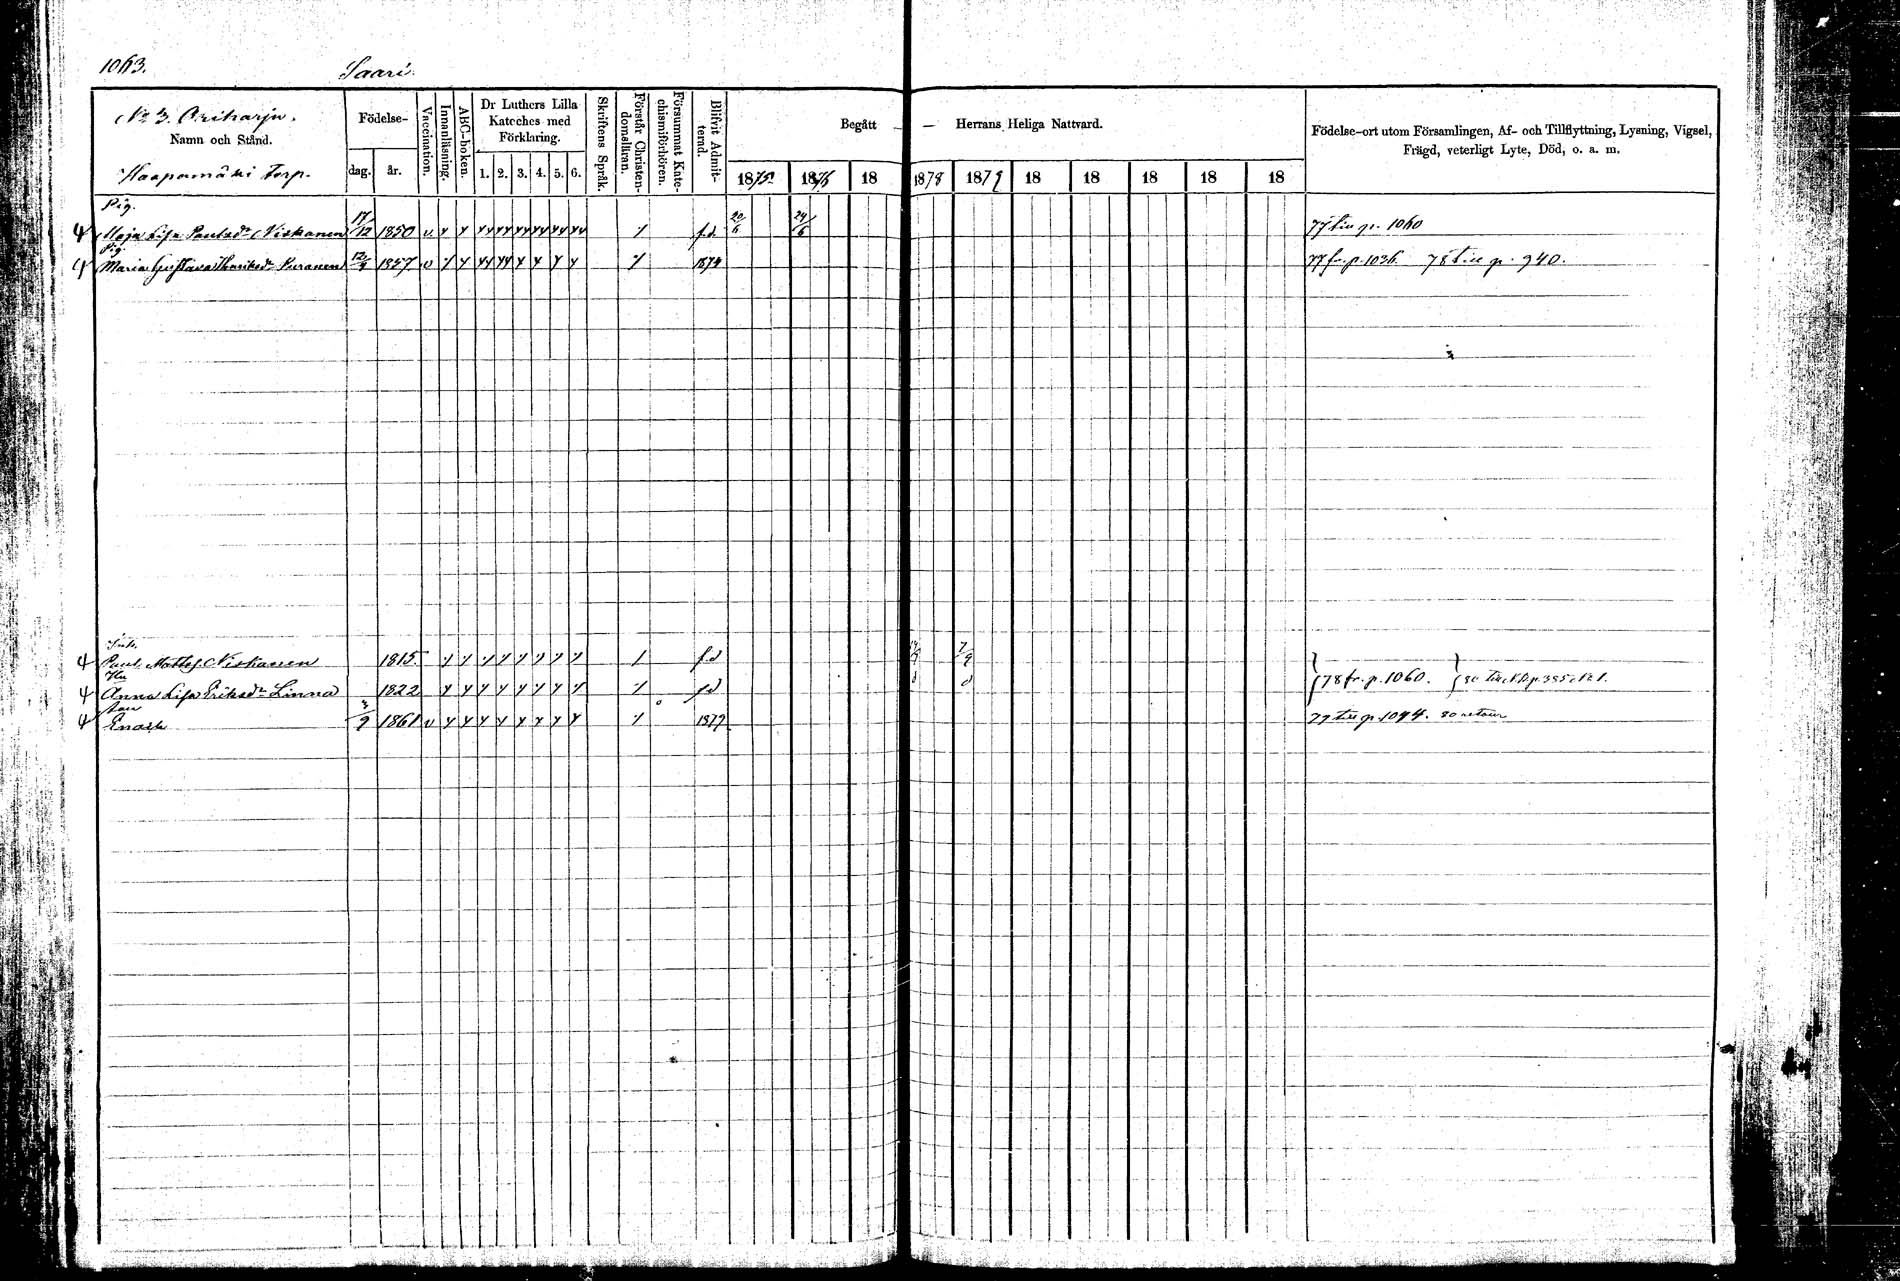 1063. Saari.
No 3. Oriharju.
Namn och Stånd.
Haapamäki Torp.
Födelse-
dag. år.
Vaccination.
Innanläsning.
ABC-boken.
Dr Luthers Lilla Kateches med Förklaring.
1. 2. 3. 4. 5. 6.
Skriftens Språk.
Förstår Christendomsläran.
Försummat Katechismiförhören.
Blifvit Admitterad.
Begått — Herrans Heliga Nattvard.
1875. 1876 18 1878 1879 18 18 18 18 18
Födelse-ort utom Församlingen, Af- och Tillflyttning, Lysning, Vigsel, Frägd, veterligt Lyte, Död, o. a. m.
Pig.
Maja Lisa Paulsdr Niskanen 17/12 1850 v f.d. 20/6 24/6 77 till p. 1060
Pig.
Maria Gustava Henriksdr Puranen 12/9 1857 v 1874 77 fr. p. 1036. 78 till p. 940.
Inh.
Paul Mattss. Niskanen 1815. f.d 7/9
Hu
Anna Lisa Eriksdr Linna 1822 f.d 78 fr. p. 1060.
Son
Enok 3/9 1861 v 1879 79 till p. 1044. 80 retour